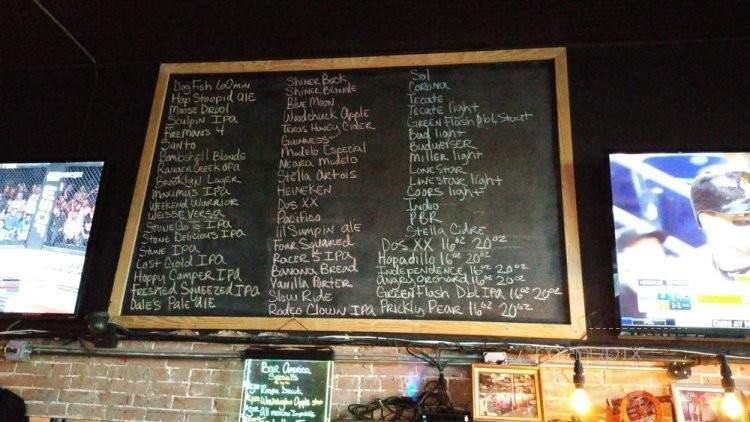 DogFish 60min
Hop Stoopid ale
Moose Drool
Sculpin IPA
Firemans 4
Santo
Bombshell Blonde
Ranger Creek OPA
Brooklyn Lager
Maximus IPA
Weekend Warrior
Weisse Versa
Stone Go To IPA
Stone Delicious IPA
Stone IPA
Lost Gold IPA
Hoppy Camper IPA
Fresh Squeezed IPA
Dale's Pale ale
Shiner Bock
Shiner Blonde
Blue Moon
Woodchuck Apple
Texas Honey Cider
Guinness
Modelo Especial
Negra Modelo
Stella Artois
Heineken
Dos XX
Pacifico
lil Sumpin ale
Four Squared
Racer 5 IPA
Banana Bread
Vanilla Porter
Slow Ride
Rodeo Clown IPA
Sol
Corona
Tecate
Tecate light
Green Flash Dbl Stout
Bud light
Budweiser
Miller light
LoneStar
LoneStar light
Coors light
Indio
PBR
Stella Cidre
Dos XX 16oz 20oz
Hopadillo 16oz 20oz
Independence 16oz 20oz
Angry Orchard 16oz 20oz
Green Flash Dbl IPA 16oz 20oz
Prickly Pear 16oz 20oz
Bar America
Specials